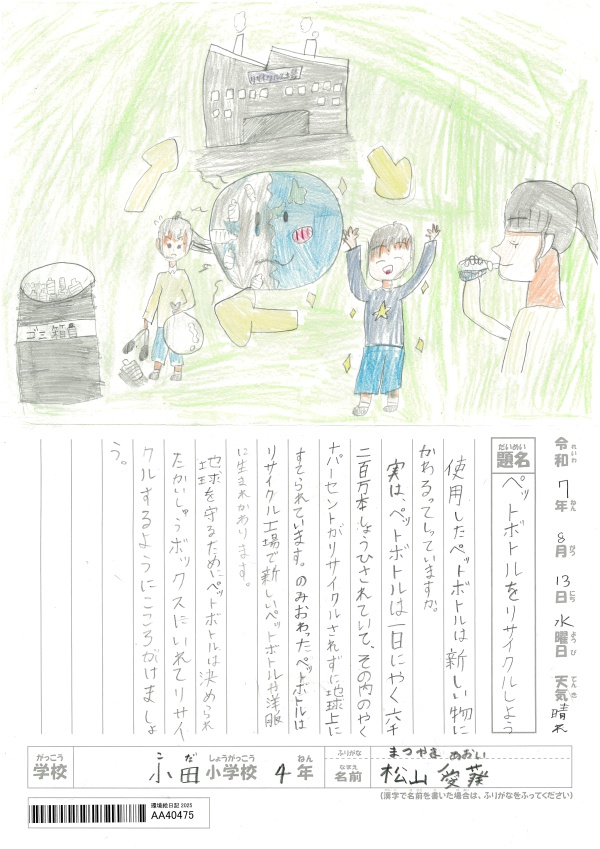 リサイクル工場
ゴミ箱
令和7年8月13日水曜日 天気 晴れ
れいわ ねん がつ にち ようび てんき
だいめい
題名 ペットボトルをリサイクルしよう
使用したペットボトルは新しい物に
かわるってしっていますか。
実は、ペットボトルは一日にやく六千
二百万本しょうひされていて、その内のやく
十パーセントがリサイクルされずに地球上に
すてられています。のみおわったペットボトルは
リサイクル工場で新しいペットボトルや洋服
に生まれかわります。
地球を守るためにペットボトルは決められ
たかいしゅうボックスにいれてリサイ
クルするようにこころがけましょ
う。
がっこう こだ しょうがっこう ねん ふりがな まつやま あおい
学校 小田 小学校 4年 なまえ 名前 松山
(漢字で名前を書いた場合は、ふりがなをふってください)
環境絵日記 2025
AA40475